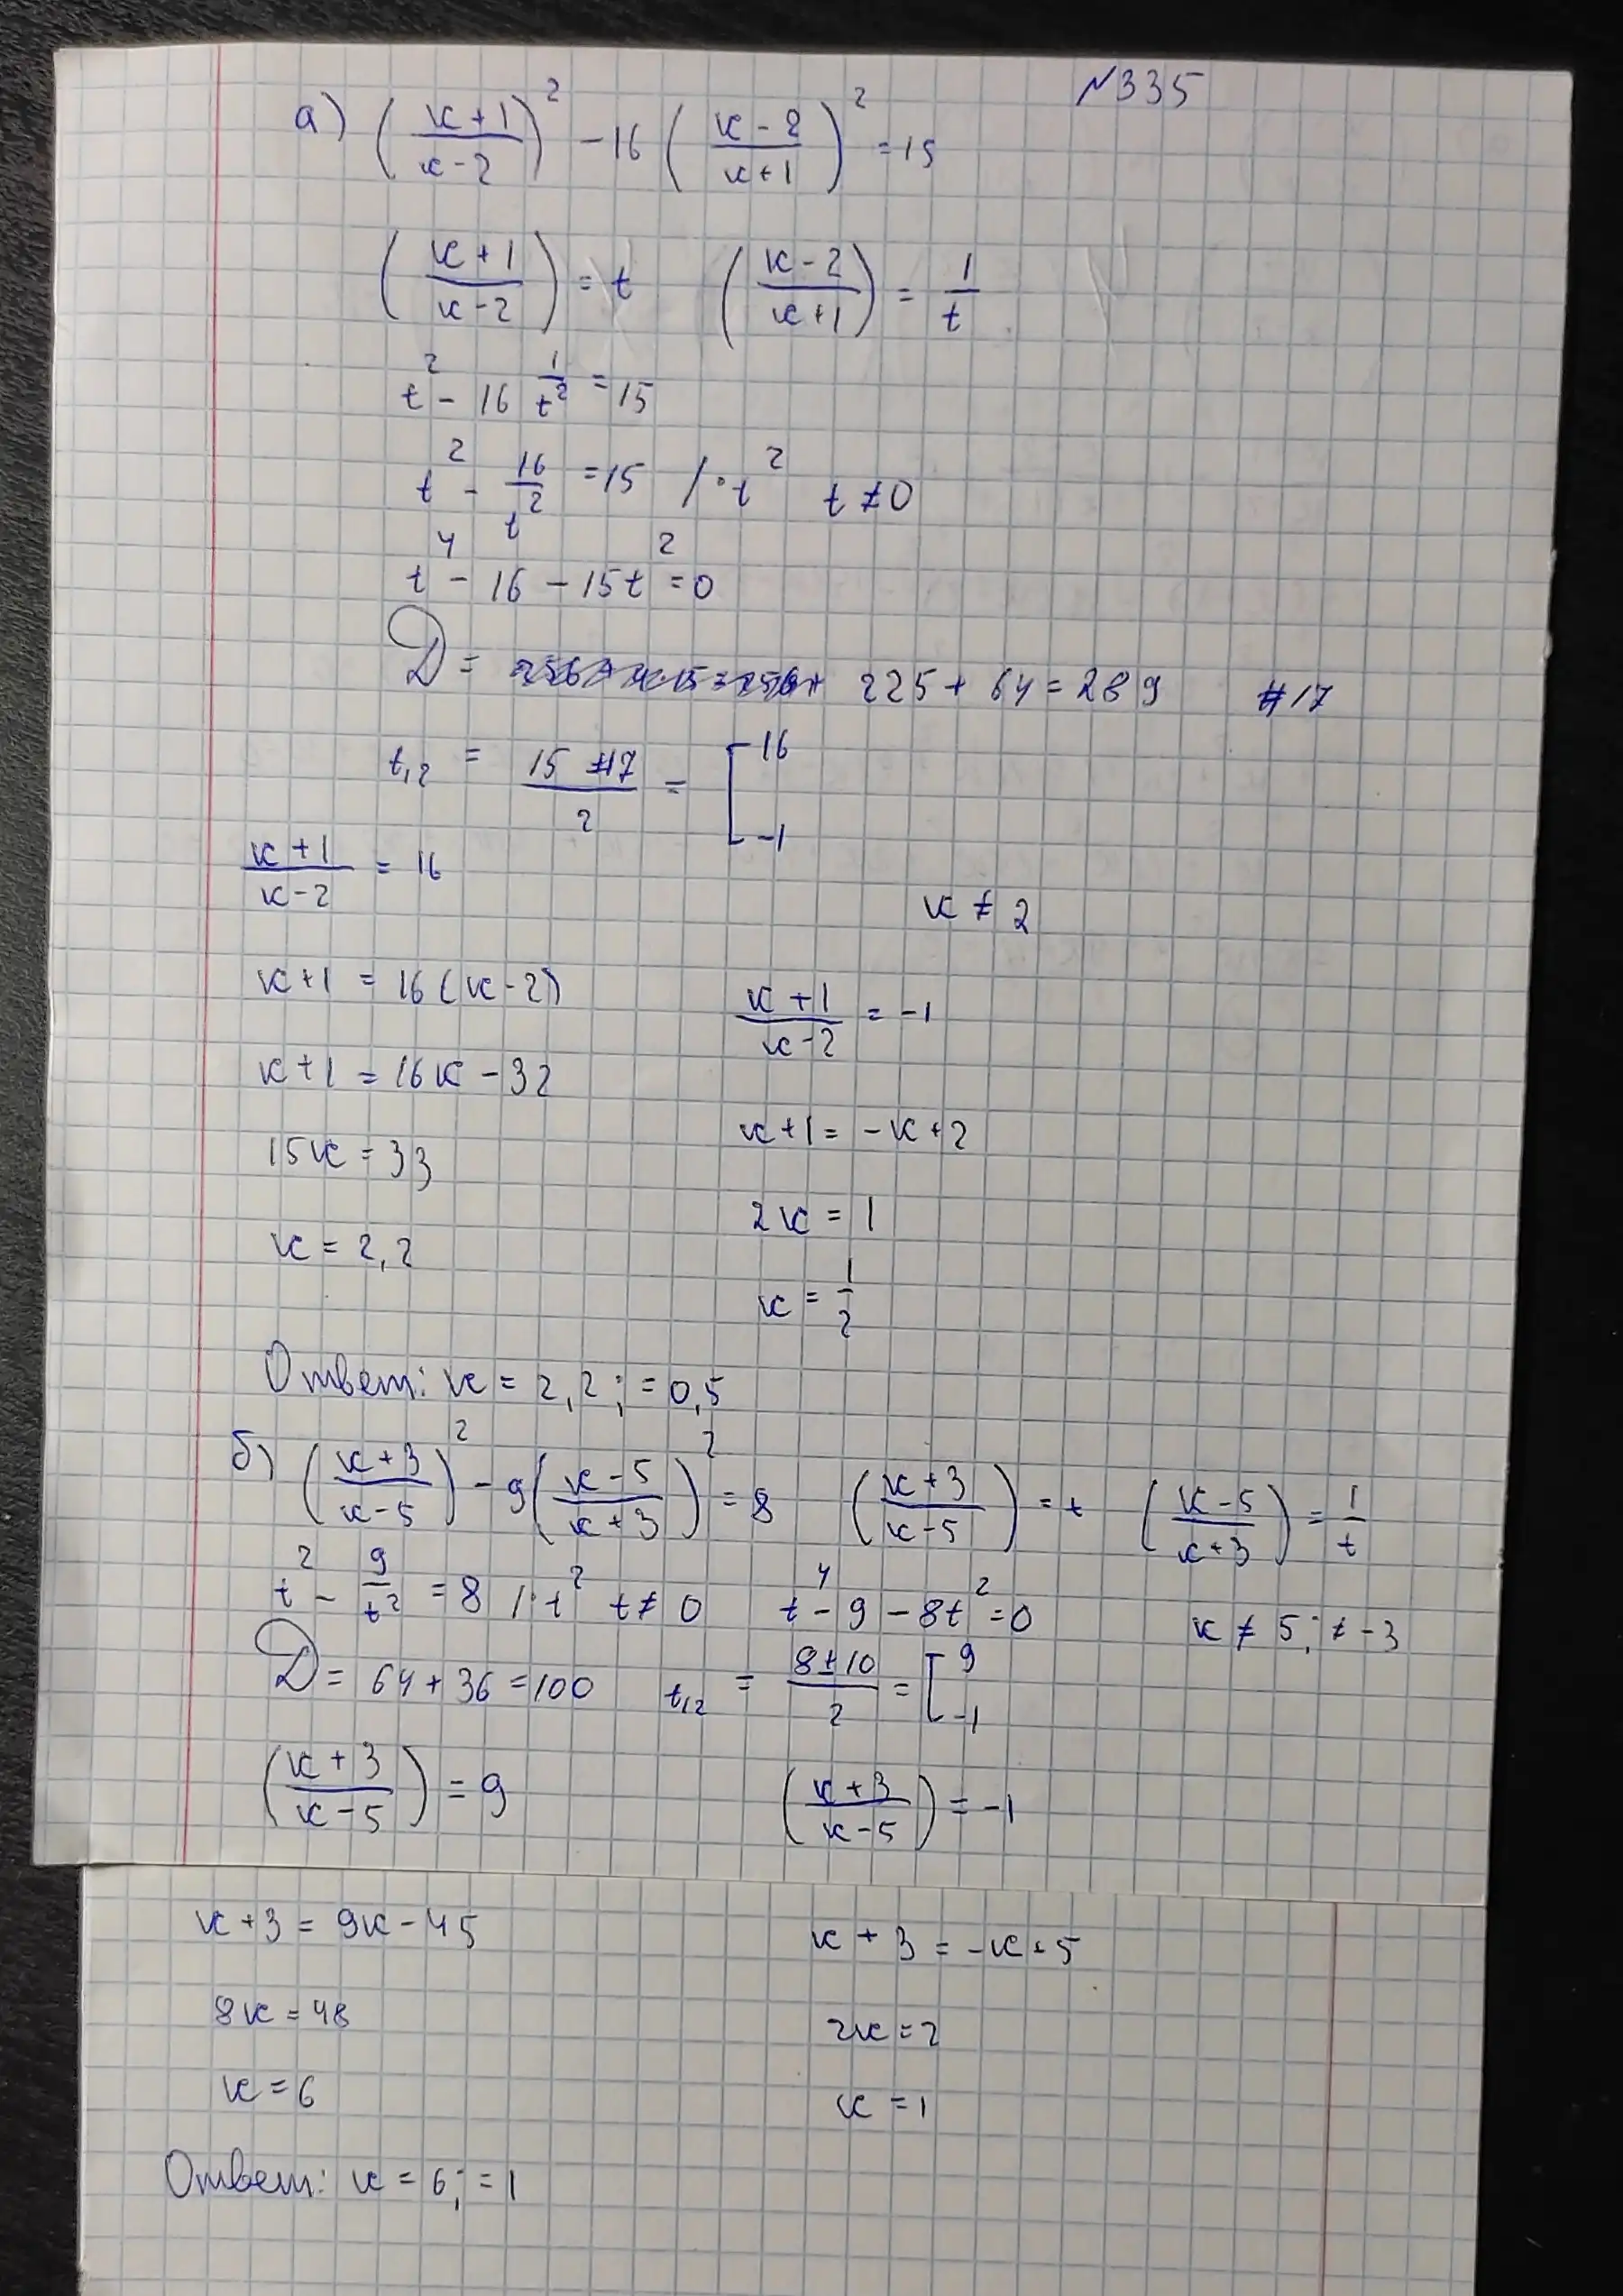 №335
а) (к+1/к-2)² - 16 (к-2/к+1)² = 15
(к+1/к-2) = t (к-2/к+1) = 1/t
t² - 16 1/t² = 15
t² - 16/t² = 15 /·t² t ≠ 0
t⁴ - 16 - 15t² = 0
D = 225 + 64 = 289 17
t₁,₂ = 15 ± 17/2 = [16 -1
к+1/к-2 = 16
к ≠ 2
к+1 = 16(к-2)
к+1/к-2 = -1
к+1 = 16к - 32
к+1 = -к+2
15к = 33
2к = 1
к = 2,2
к = 1/2
Ответ: к = 2,2 ; = 0,5
б) (к+3/к-5)² - 9(к-5/к+3)² = 8 (к+3/к-5) = t (к-5/к+3) = 1/t
t² - 9/t² = 8 /·t² t ≠ 0 t⁴ - 9 - 8t² = 0 к ≠ 5; ≠ -3
D = 64 + 36 = 100 t₁,₂ = 8±10/2 = [9 -1
(к+3/к-5) = 9 (к+3/к-5) = -1
к+3 = 9к - 45 к+3 = -к+5
8к = 48 2к = 2
к = 6 к = 1
Ответ: к = 6; = 1